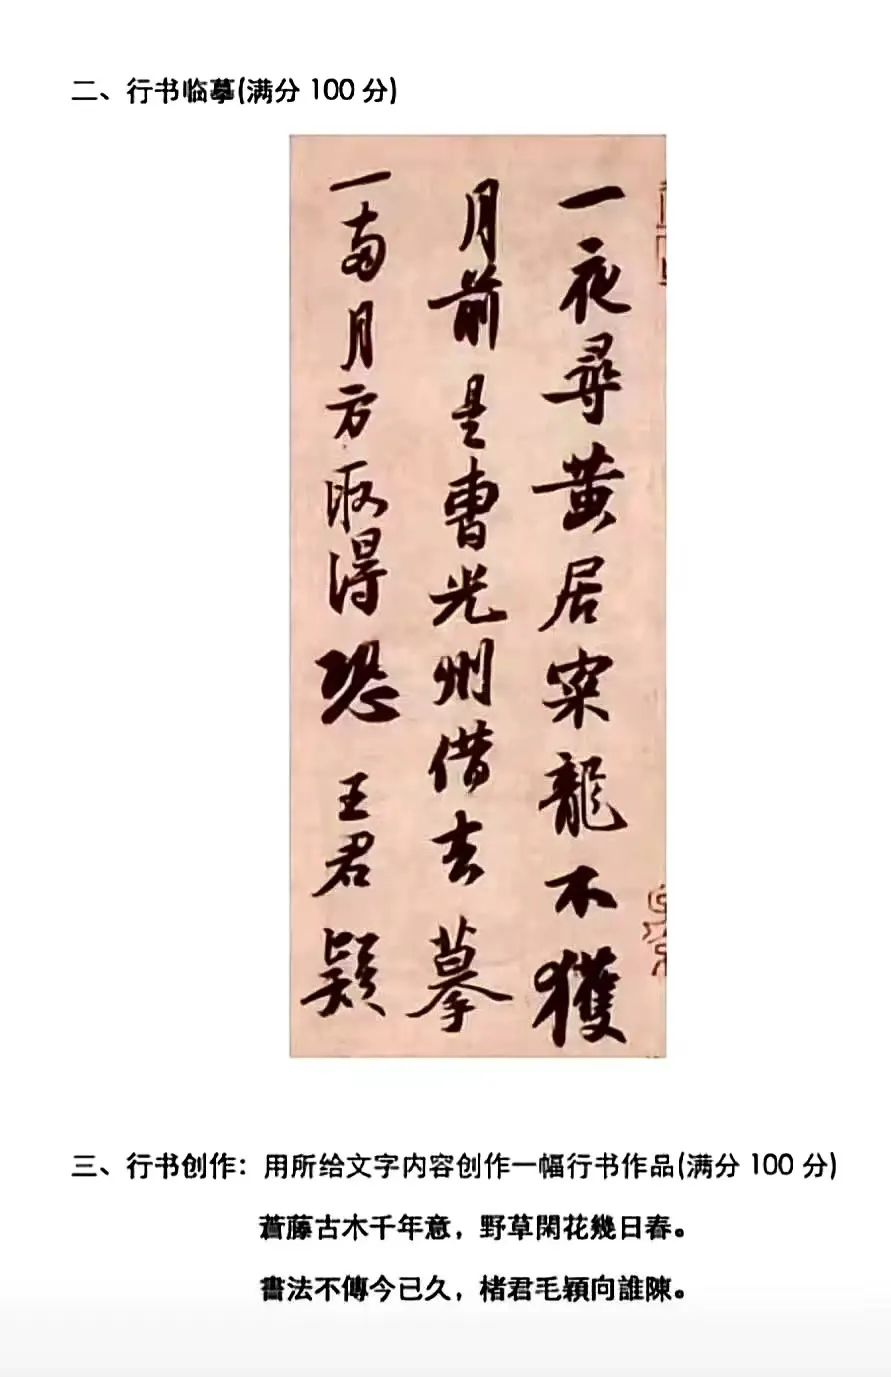 二、行书临摹(满分 100 分)
一夜尋黄居寀龍不獲
月前是曹光州借去摹
一兩月方取得恐王君疑
三、行书创作：用所给文字内容创作一幅行书作品(满分 100 分)
蒼藤古木千年意，野草閑花幾日春。
書法不傳今已久，楮君毛穎向誰陳。